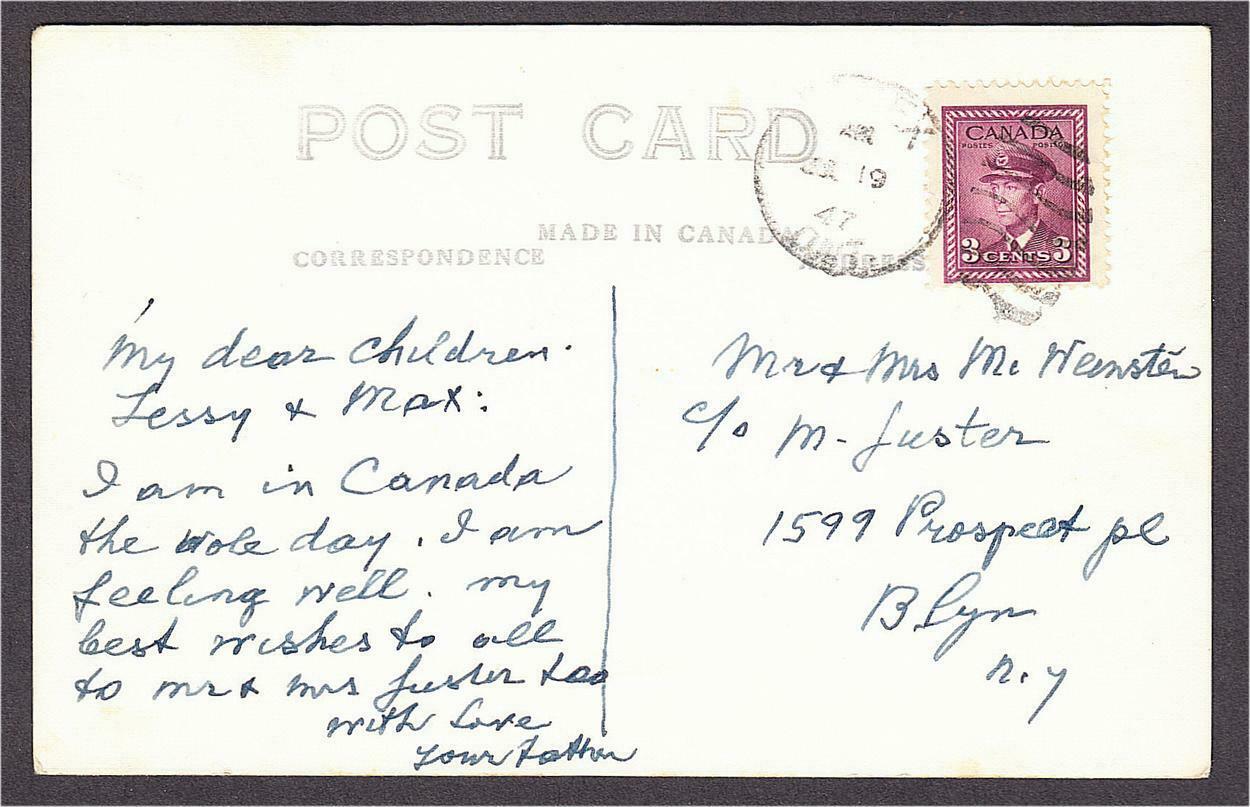 POST CARD
19
47
CANADA
POSTES POSTAGE
3 CENTS 3
MADE IN CANADA
CORRESPONDENCE
ADDRESS
My dear children.
Lessy & Max:
I am in Canada
the wole day. I am
feeling well. my
best wishes to all
to mr & mrs Juster too
with love
your father
Mr & Mrs M. Weinstein
c/o M- Juster
1599 Prospect pl
Blyn
n.y